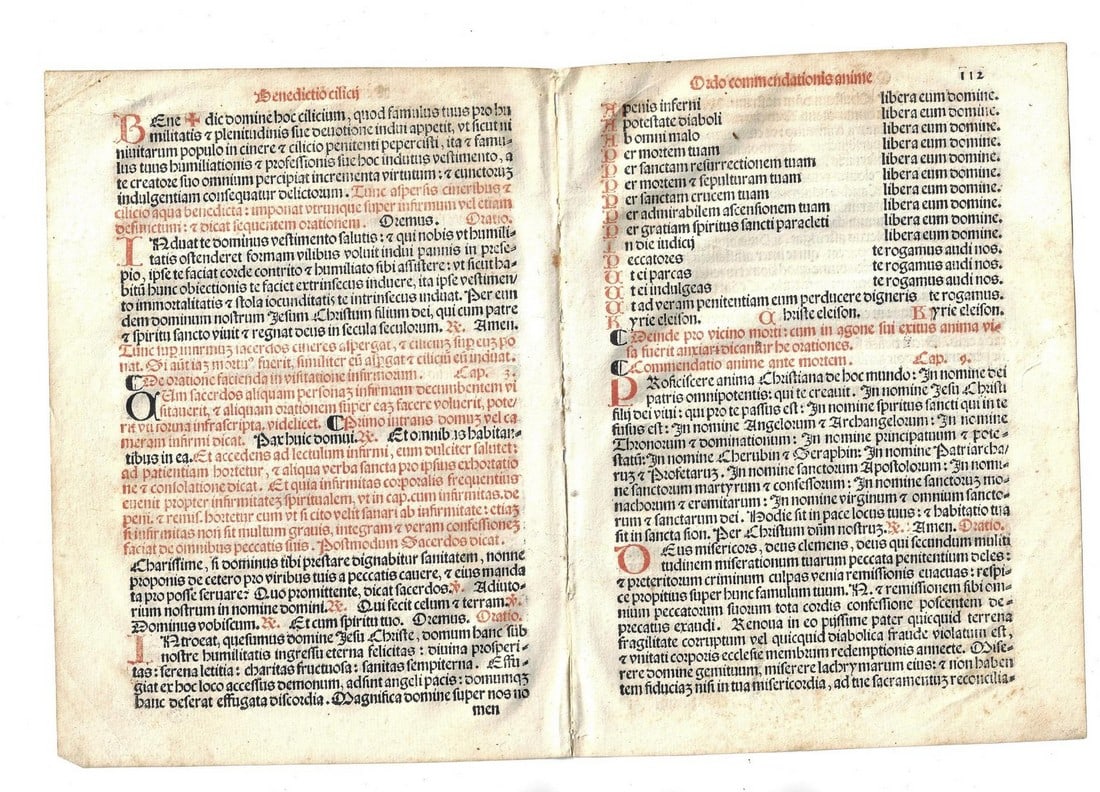 Benedictio cilicij
BEne ✠ dic domine hoc cilicium, quod famulus tuus pro hu
militatis ⁊ plenitudinis sue deuotione indui appetit, vt sicut ni
niuitarum populo in cinere ⁊ cilicio penitenti pepercisti, ita ⁊ famu-
lus tuus humiliationis ⁊ professionis sue hoc indutus vestimento, a
te creatore suo omnium percipiat incrementa virtutum: ⁊ cunctoruz
indulgentiam consequatur delictorum. Tunc aspersis cineribus ⁊
cilicio aqua benedicta: imponat vtrunque super infirmum vel etiam
defunctum: ⁊ dicat sequentem orationem. Oremus. Oratio.
INduat te dominus vestimento salutis: ⁊ qui nobis vt humili-
tatis ostenderet formam vilibus voluit indui pannis in prese-
pio, ipse te faciat corde contrito ⁊ humiliato sibi assistere: vt sicut ha-
bitū hunc obiectionis te faciet extrinsecus induere, ita ipse vestimen-
to immortalitatis ⁊ stola iocunditatis te intrinsecus induat. Per eun
dem dominum nostrum Jesum Christum filium dei, qui cum patre
⁊ spiritu sancto viuit ⁊ regnat deus in secula seculorum. ℟. Amen.
Tunc sup infirmum sacerdos cineres aspergat, ⁊ cilicium sup eum po
nat. Si aūt iaz mortu⁹ fuerit, similiter eū aspgat ⁊ ciliciū eū induat.
¶De oratione facienda in visitatione infirmorum. Cap. 3.
QUm sacerdos aliquam personaz infirmam decumbentem vi
sitauerit, ⁊ aliquam orationem super eaz facere voluerit, pote/
rit vti forma infrascripta, videlicet. ¶Primo intrans domuz vel ca
meram infirmi dicat. Pax huic domui. ℟. Et omnibus habitan-
tibus in ea. Et accedens ad lectulum infirmi, eum dulciter salutet:
ad patientiam hortetur, ⁊ aliqua verba sancta pro ipsius exhortatio
ne ⁊ consolatione dicat. Et quia infirmitas corporalis frequentius
euenit propter infirmitatez spiritualem, vt in cap. cum infirmitas. de
peni. ⁊ remis. hortetur eum vt si cito velit sanari ab infirmitate: etiaz
si infirmitas non sit multum grauis, integram ⁊ veram confessionez
faciat de omnibus peccatis suis. Postmodum Sacerdos dicat.
Charissime, si dominus tibi prestare dignabitur sanitatem, nonne
proponis de cetero pro viribus tuis a peccatis cauere, ⁊ eius manda
ta pro posse seruare? Quo promittente, dicat sacerdos. ℣. Adiuto-
rium nostrum in nomine domini. ℟. Qui fecit celum ⁊ terram. ℣.
Dominus vobiscum. ℟. Et cum spiritu tuo. Oremus. Oratio.
INtroeat, quesumus domine Jesu Christe, domum hanc sub
nostre humilitatis ingressu eterna felicitas: diuina prosperi-
tas: serena letitia: charitas fructuosa: sanitas sempiterna. Effu-
giat ex hoc loco accessus demonum, adsint angeli pacis: domumqz
hanc deserat effugata discordia. Magnifica domine super nos no
men
Ordo commendationis anime 112
A penis inferni libera eum domine.
A potestate diaboli libera eum domine.
Ab omni malo libera eum domine.
Per mortem tuam libera eum domine.
Per sanctam resurrectionem tuam libera eum domine.
Per mortem ⁊ sepulturam tuam libera eum domine.
Per sanctam crucem tuam libera eum domine.
Per admirabilem ascensionem tuam libera eum domine.
Per gratiam spiritus sancti paracleti libera eum domine.
In die iudicij libera eum domine.
Peccatores te rogamus audi nos.
Ut ei parcas te rogamus audi nos.
Ut ei indulgeas te rogamus audi nos.
Ut ad veram penitentiam eum perducere digneris te rogamus.
Kyrie eleison. Christe eleison. Kyrie eleison.
¶Deinde pro vicino morti: cum in agone sui exitus anima vi-
sa fuerit anxiari dicantur he orationes.
¶Commendatio anime ante mortem. Cap. 9.
PRoficiscere anima Christiana de hoc mundo: In nomine dei
patris omnipotentis: qui te creauit. In nomine Jesu Christi
filij dei viui: qui pro te passus est: In nomine spiritus sancti qui in te
fusus est: In nomine Angelorum ⁊ Archangelorum: In nomine
Thronorum ⁊ dominationum: In nomine principatuum ⁊ pote-
statū: In nomine Cherubin ⁊ Seraphin: In nomine Patriarcha/
ruz ⁊ Prophetaruz. In nomine sanctorum Apostolorum: In nomi-
ne sanctorum martyrum ⁊ confessorum: In nomine sanctoruz mo-
nachorum ⁊ eremitarum: In nomine virginum ⁊ omnium sancto-
rum ⁊ sanctarum dei. Hodie sit in pace locus tuus: ⁊ habitatio tua
sit in sancta sion. Per Christum dūm nostruz. ℟. Amen. Oratio.
DEus misericors, deus clemens, deus qui secundum multi
tudinem miserationum tuarum peccata penitentium deles:
⁊ preteritorum criminum culpas venia remissionis euacuas: respi-
ce propitius super hunc famulum tuum. N. ⁊ remissionem sibi om-
nium peccatorum suorum tota cordis confessione poscentem de-
precatus exaudi. Renoua in eo pijssime pater quicquid terrena
fragilitate corruptum vel quicquid diabolica fraude violatum est,
⁊ vnitati corporis ecclesie membrum redemptionis annecte. Mise-
rere domine gemituum, miserere lachrymarum eius: ⁊ non haben
tem fiduciaz nisi in tua misericordia, ad tue sacramentuz reconcilia-